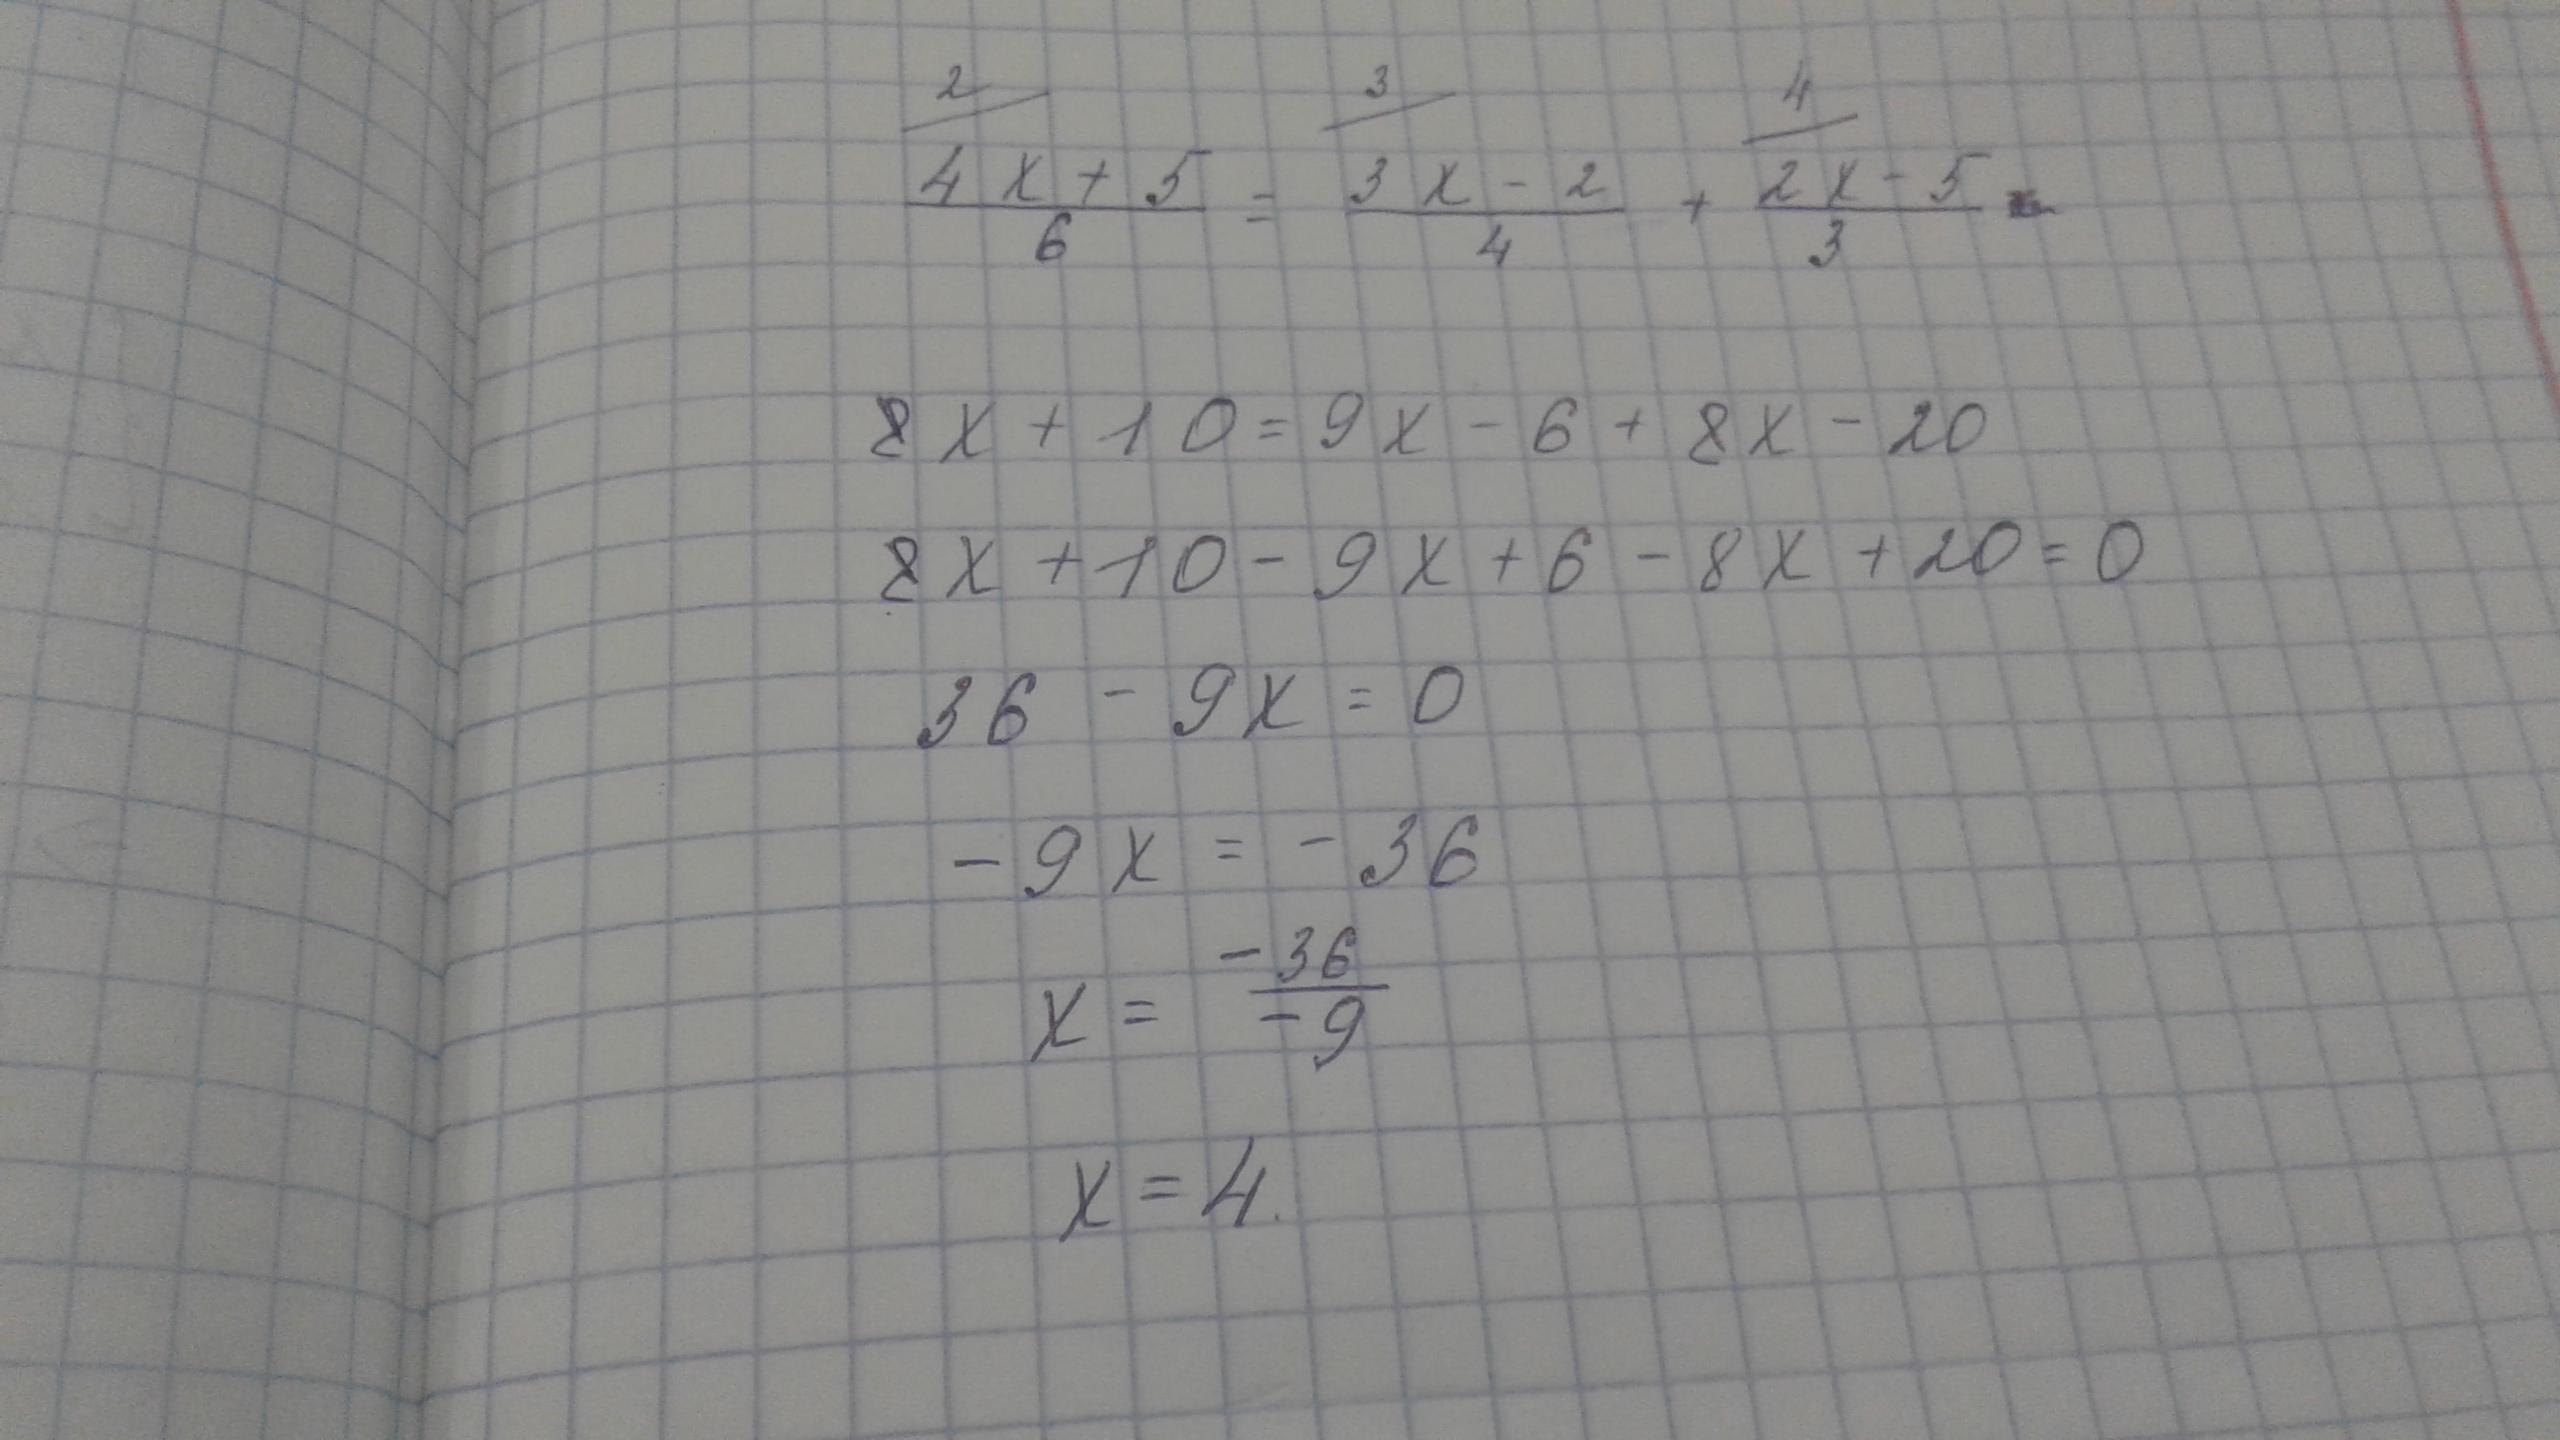 2 3 4
4x+5/6 = 3x-2/4 + 2x-5/3
8x+10=9x-6+8x-20
8x+10-9x+6-8x+20=0
36-9x=0
-9x=-36
x=-36/-9
x=4.